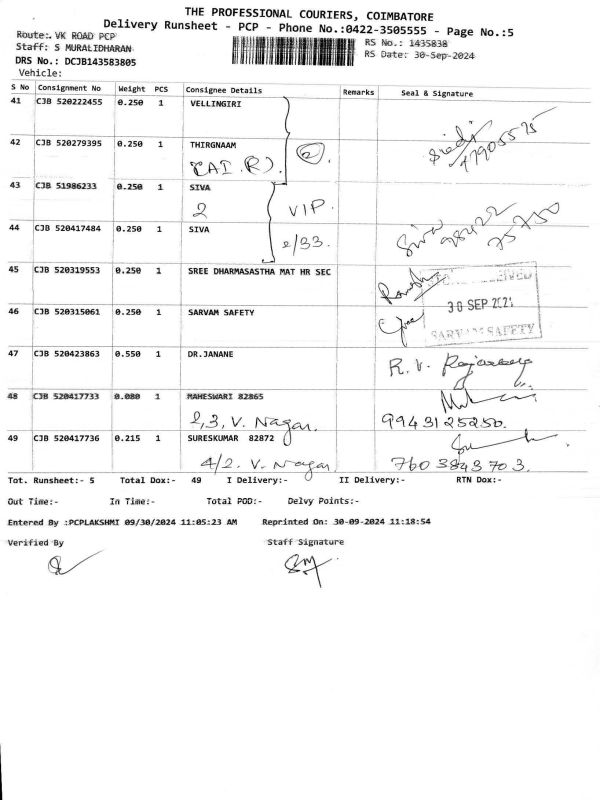 THE PROFESSIONAL COURIERS, COIMBATORE
Delivery Runsheet - PCP - Phone No.:0422-3505555 - Page No.:5
Route:. VK ROAD PCP
RS No.: 1435838
Staff: S MURALIDHARAN
RS Date: 30-Sep-2024
DRS No.: DCJB143583805
Vehicle:
S No Consignment No Weight PCS Consignee Details Remarks Seal & Signature
41 CJB 520222455 0.250 1 VELLINGIRI
42 CJB 520279395 0.250 1 THIRGNAAM
2
43 CJB 51986233 0.250 1 SIVA
2 VIP.
44 CJB 520417484 0.250 1 SIVA
2/33.
Siva 98422
75750
45 CJB 520319553 0.250 1 SREE DHARMASASTHA MAT HR SEC
30 SEP 2021
46 CJB 520315061 0.250 1 SARVAM SAFETY
SARVAM SAFETY
47 CJB 520423863 0.550 1 DR.JANANE
R. V.
48 CJB 520417733 0.080 1 MAHESWARI 82865
2,3, V. Nagar.
9943125250.
49 CJB 520417736 0.215 1 SURESKUMAR 82872
4/2. V. Nagar.
7603843703.
Tot. Runsheet:- 5 Total Dox:- 49 I Delivery:- II Delivery:- RTN Dox:-
Out Time:- In Time:- Total POD:- Delvy Points:-
Entered By :PCPLAKSHMI 09/30/2024 11:05:23 AM Reprinted On: 30-09-2024 11:18:54
Verified By Staff Signature